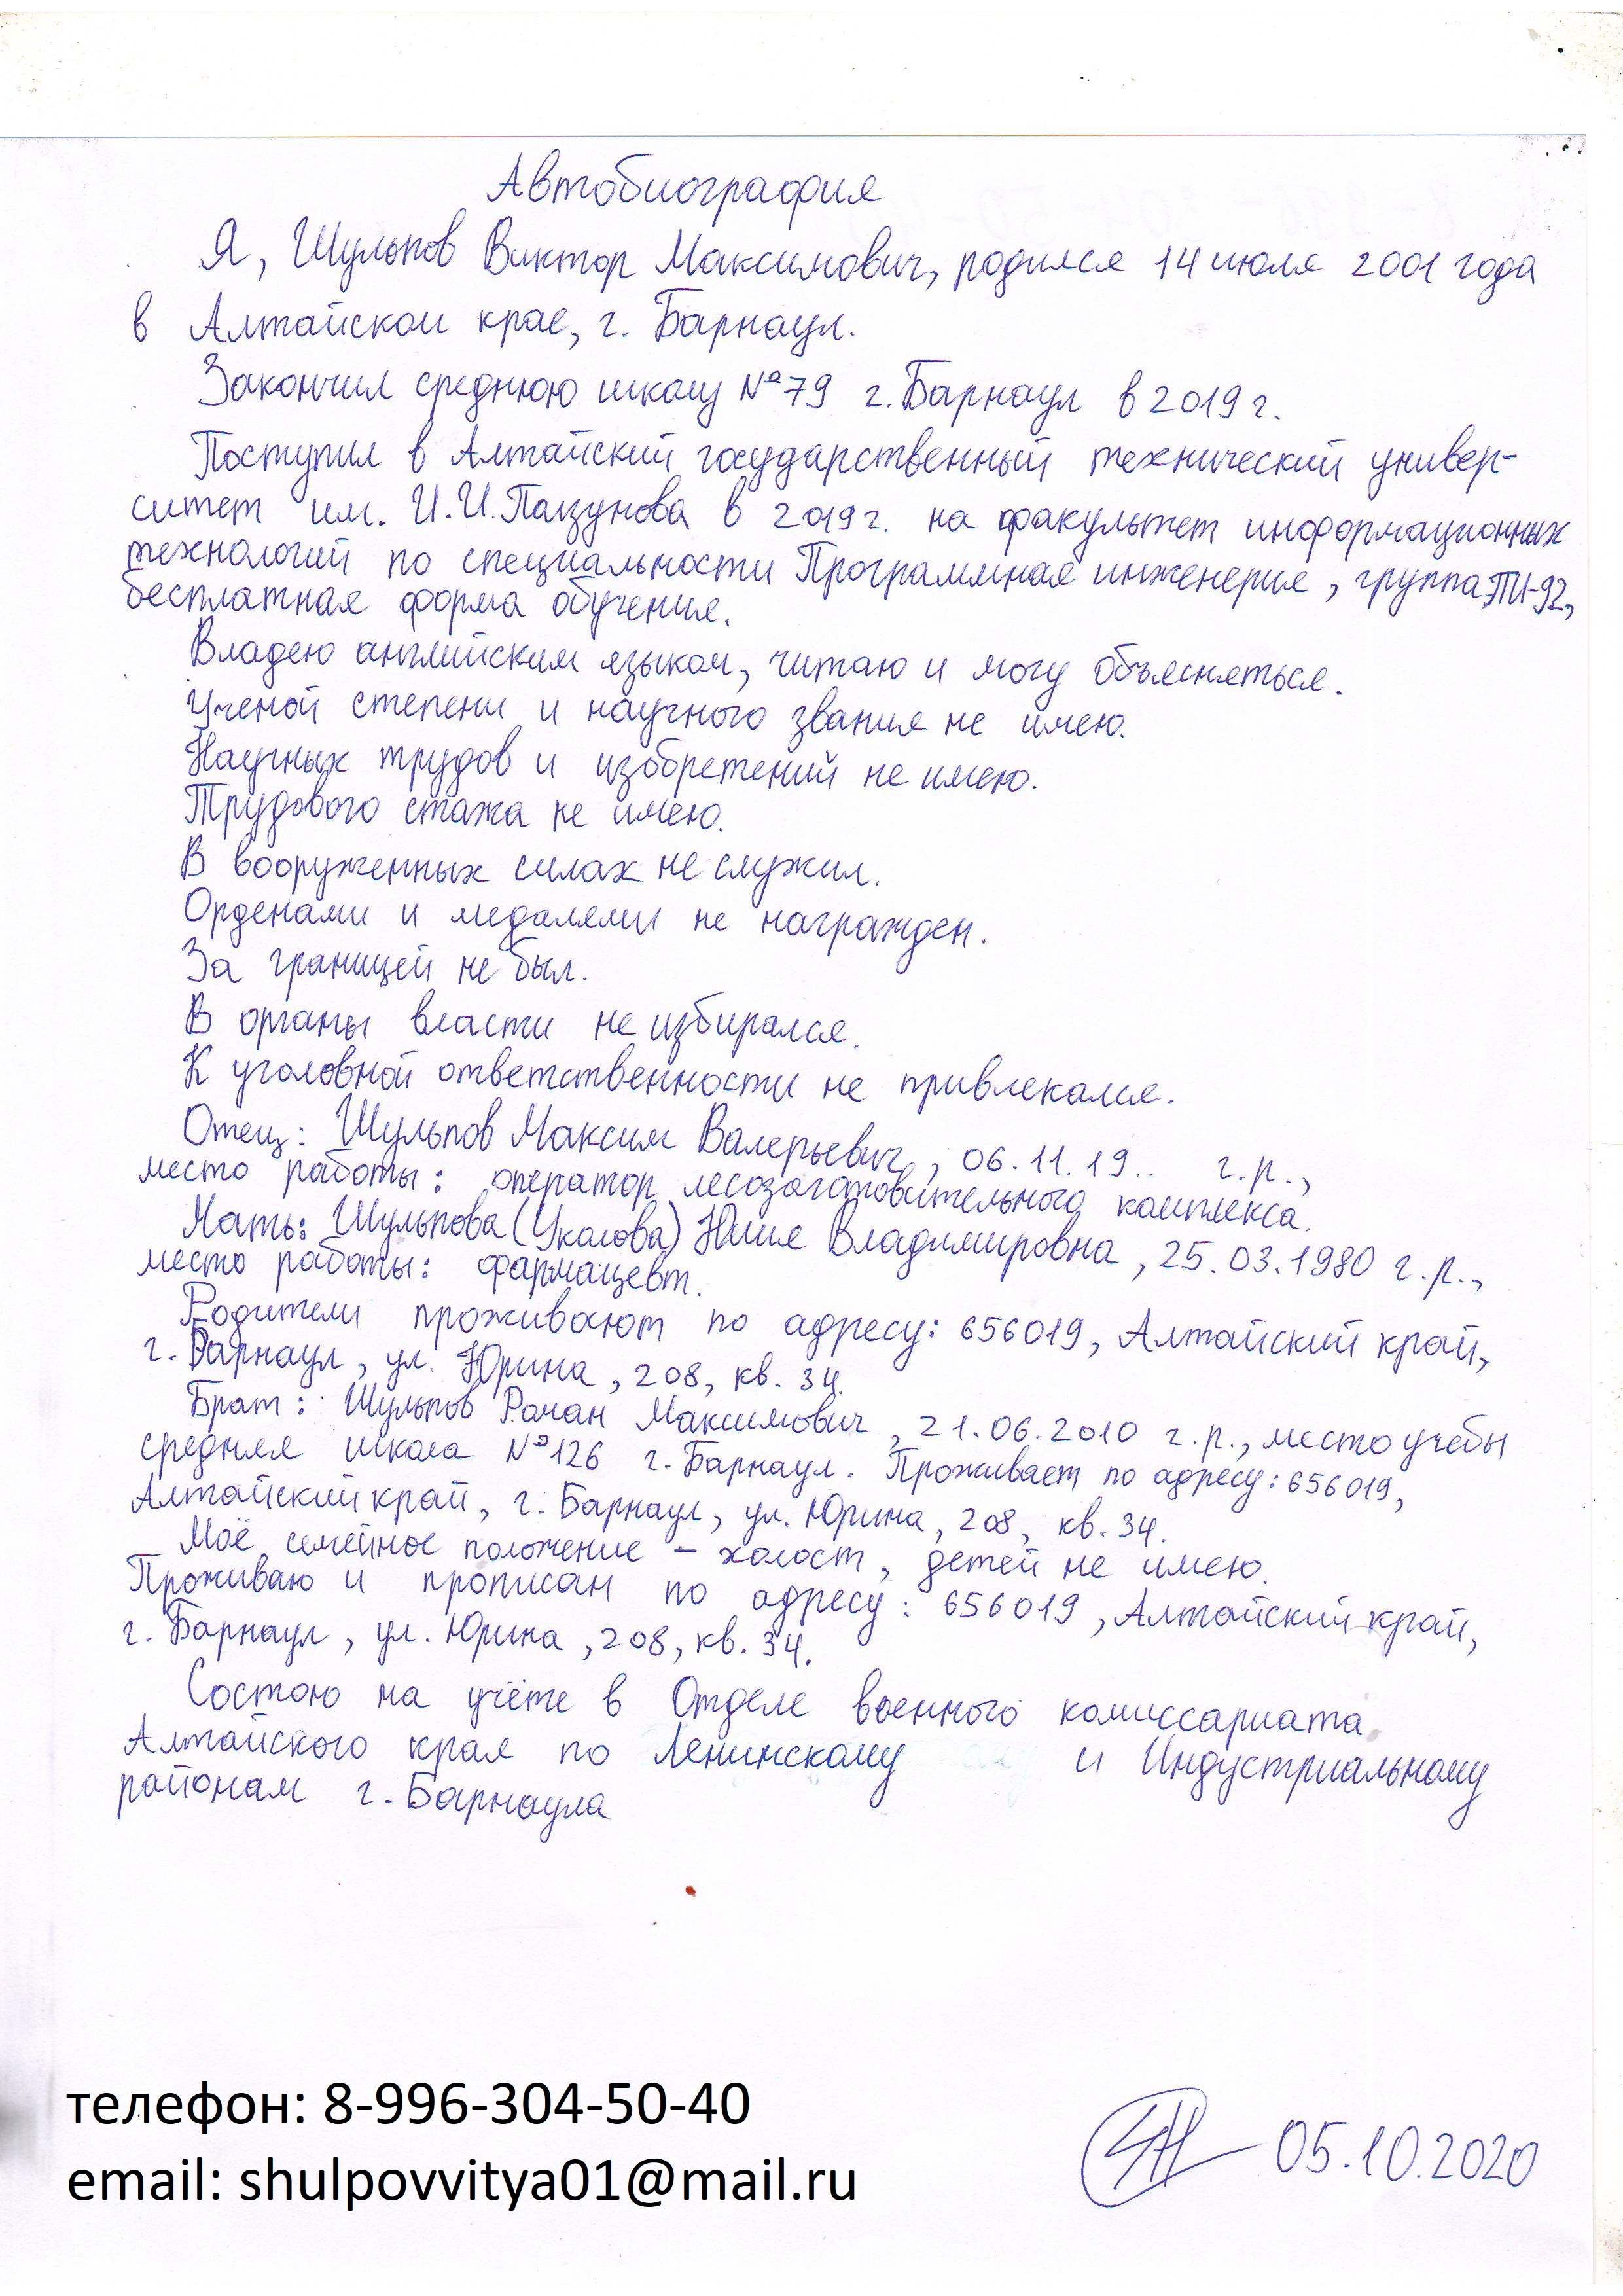 Автобиография
Я, Шульпов Виктор Максимович, родился 14 июля 2001 года
в Алтайском крае, г. Барнаул.
Закончил среднюю школу №79 г. Барнаул в 2019 г.
Поступил в Алтайский государственный технический универ-
ситет им. И.И. Ползунова в 2019 г. на факультет информационных
технологий по специальности Программная инженерия, группа ПИ-92,
бесплатная форма обучения.
Владею английским языком, читаю и могу объясняться.
Ученой степени и научного звания не имею.
Научных трудов и изобретений не имею.
Трудового стажа не имею.
В вооруженных силах не служил.
Орденами и медалями не награжден.
За границей не был.
В органы власти не избирался.
К уголовной ответственности не привлекался.
Отец: Шульпов Максим Валерьевич, 06.11.19.. г.р.,
место работы: оператор лесозаготовительного комплекса.
Мать: Шульпова (Уколова) Юлия Владимировна, 25.03.1980 г.р.,
место работы: фармацевт.
Родители проживают по адресу: 656019, Алтайский край,
г. Барнаул, ул. Юрина, 208, кв. 34.
Брат: Шульпов Роман Максимович, 21.06.2010 г.р., место учебы
средняя школа №126 г. Барнаул. Проживает по адресу: 656019,
Алтайский край, г. Барнаул, ул. Юрина, 208, кв. 34.
Моё семейное положение – холост, детей не имею.
Проживаю и прописан по адресу: 656019, Алтайский край,
г. Барнаул, ул. Юрина, 208, кв. 34.
Состою на учёте в Отделе военного комиссариата
Алтайского края по Ленинскому и Индустриальному
районам г. Барнаула
телефон: 8-996-304-50-40
email: shulpovvitya01@mail.ru
05.10.2020